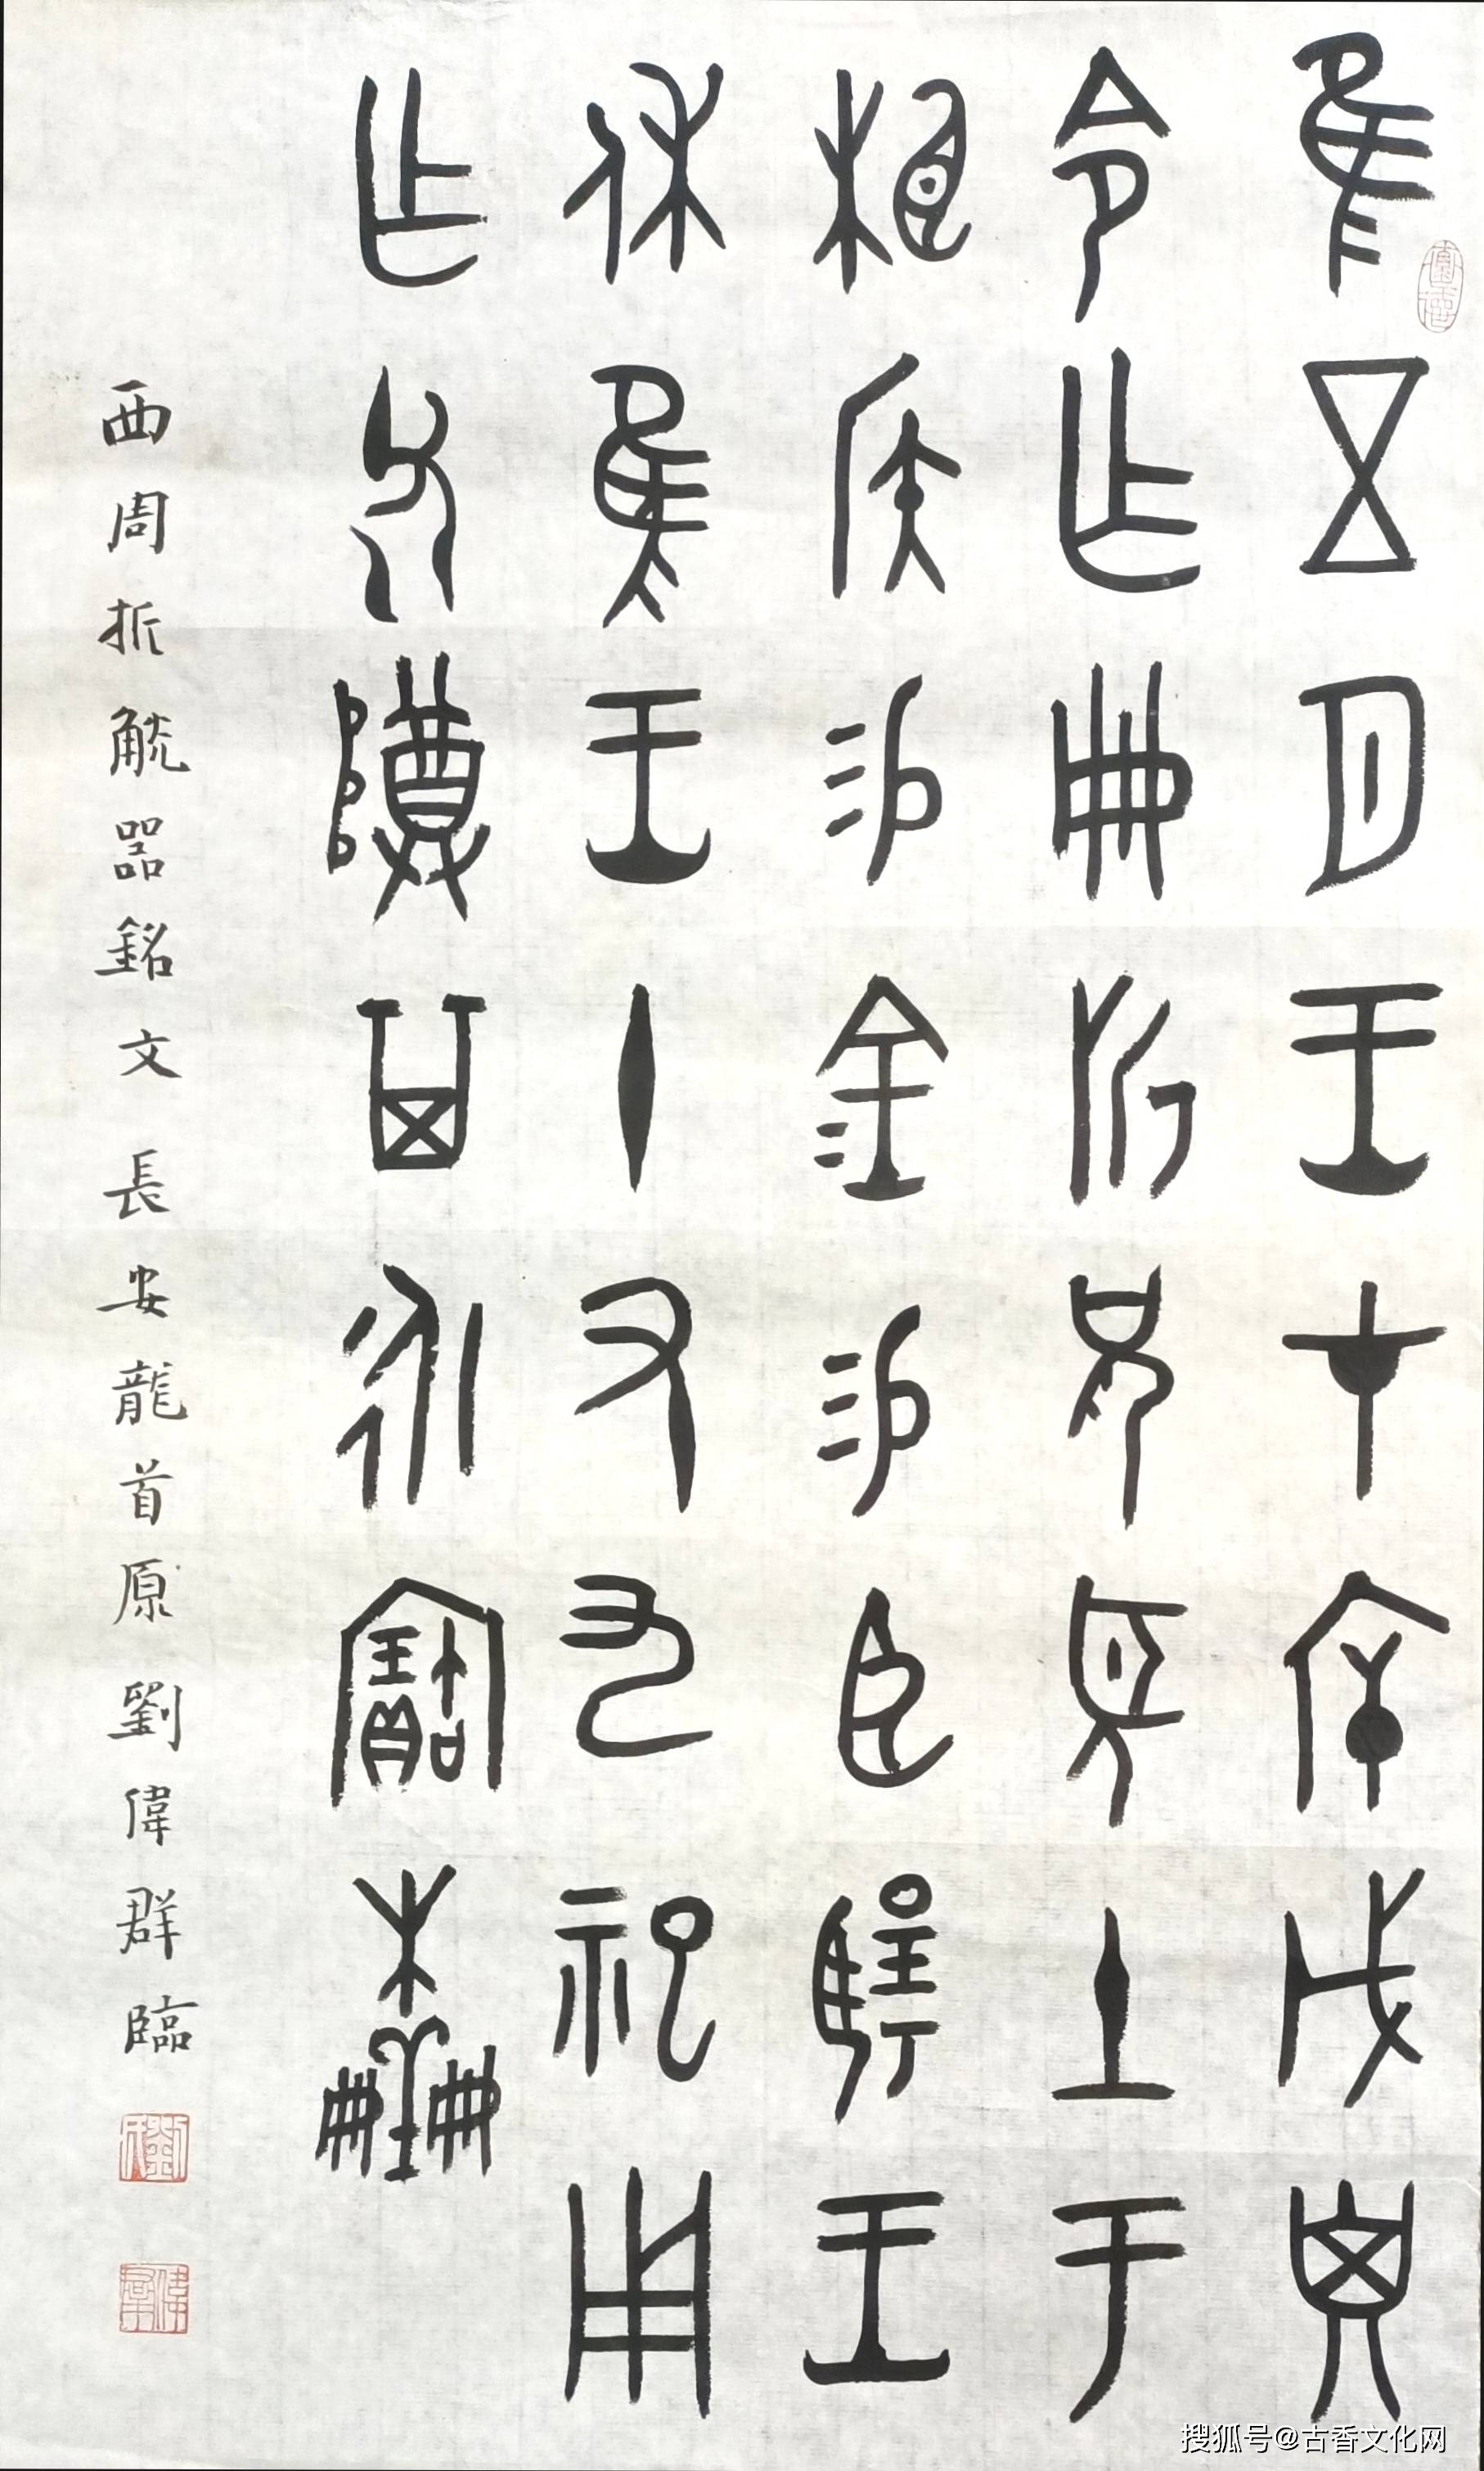 隹五月王才厈戊子
令乍冊折兄朢土于
相侯易金易臣揚王
休隹王十又九祀用
乍父乙尊其永寶木羊冊
西周折觥器銘文長安龍首原劉偉群臨
偉群
搜狐号@古香文化网